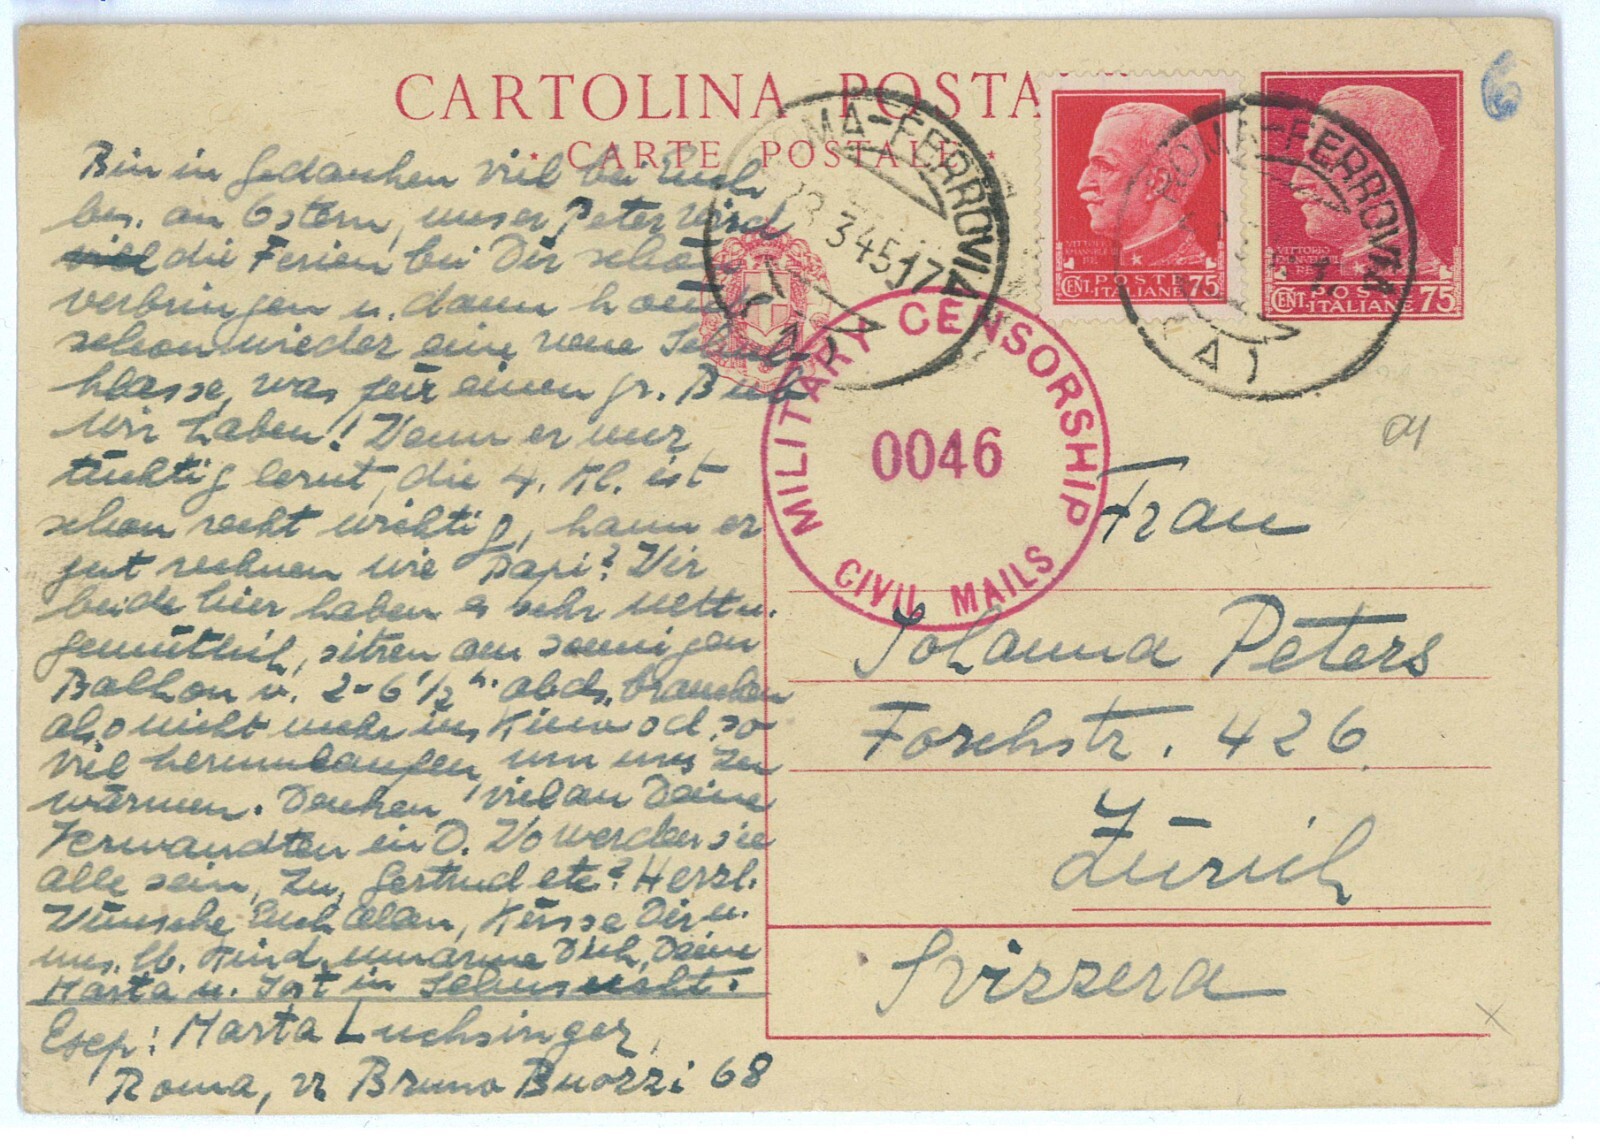 CARTOLINA POSTA
CARTE POSTALE
6
ROMA-FERROVIA
3 45 17
ROMA-FERROVIA
VITTORIO EMANUELE RE
CENT. POSTE ITALIANE 75
VITTORIO EMANUELE RE
CENT. POSTE ITALIANE 75
MILITARY CENSORSHIP
0046
CIVIL MAILS
Bin in Gedanken viel bei Euch
bes. an Ostern, unser Peter wird
viel die Ferien bei Dir schön
verbringen u. dann kommt
schon wieder eine neue Schul
klasse, was für einen gr. Bub
wir haben! Wenn er nur
tüchtig lernt, die 4. Kl. ist
schon recht wichtig, kann er
gut rechnen wie Papi? Wir
beide hier haben es sehr nett u.
gemütlich, sitzen am sonnigen
Balkon v. 2-6 1/2 h. abds. brauchen
also nicht mehr ins Kino od. so
viel herum, um uns zu
wärmen. Denken viel an Deine
Verwandten in D. Wo werden sie
alle sein, Gertrud etc? Herzl.
Wünsche Euch allen, Küsse Dir u.
uns. lb. Kind, umarme Dich, Deine
Marta u. Jost in Sehnsucht.
Esep: Marta Luchsinger,
Roma, v. Bruno Buozzi 68
Frau
Johanna Peters
Forchstr. 426
Zürich
Svizzera